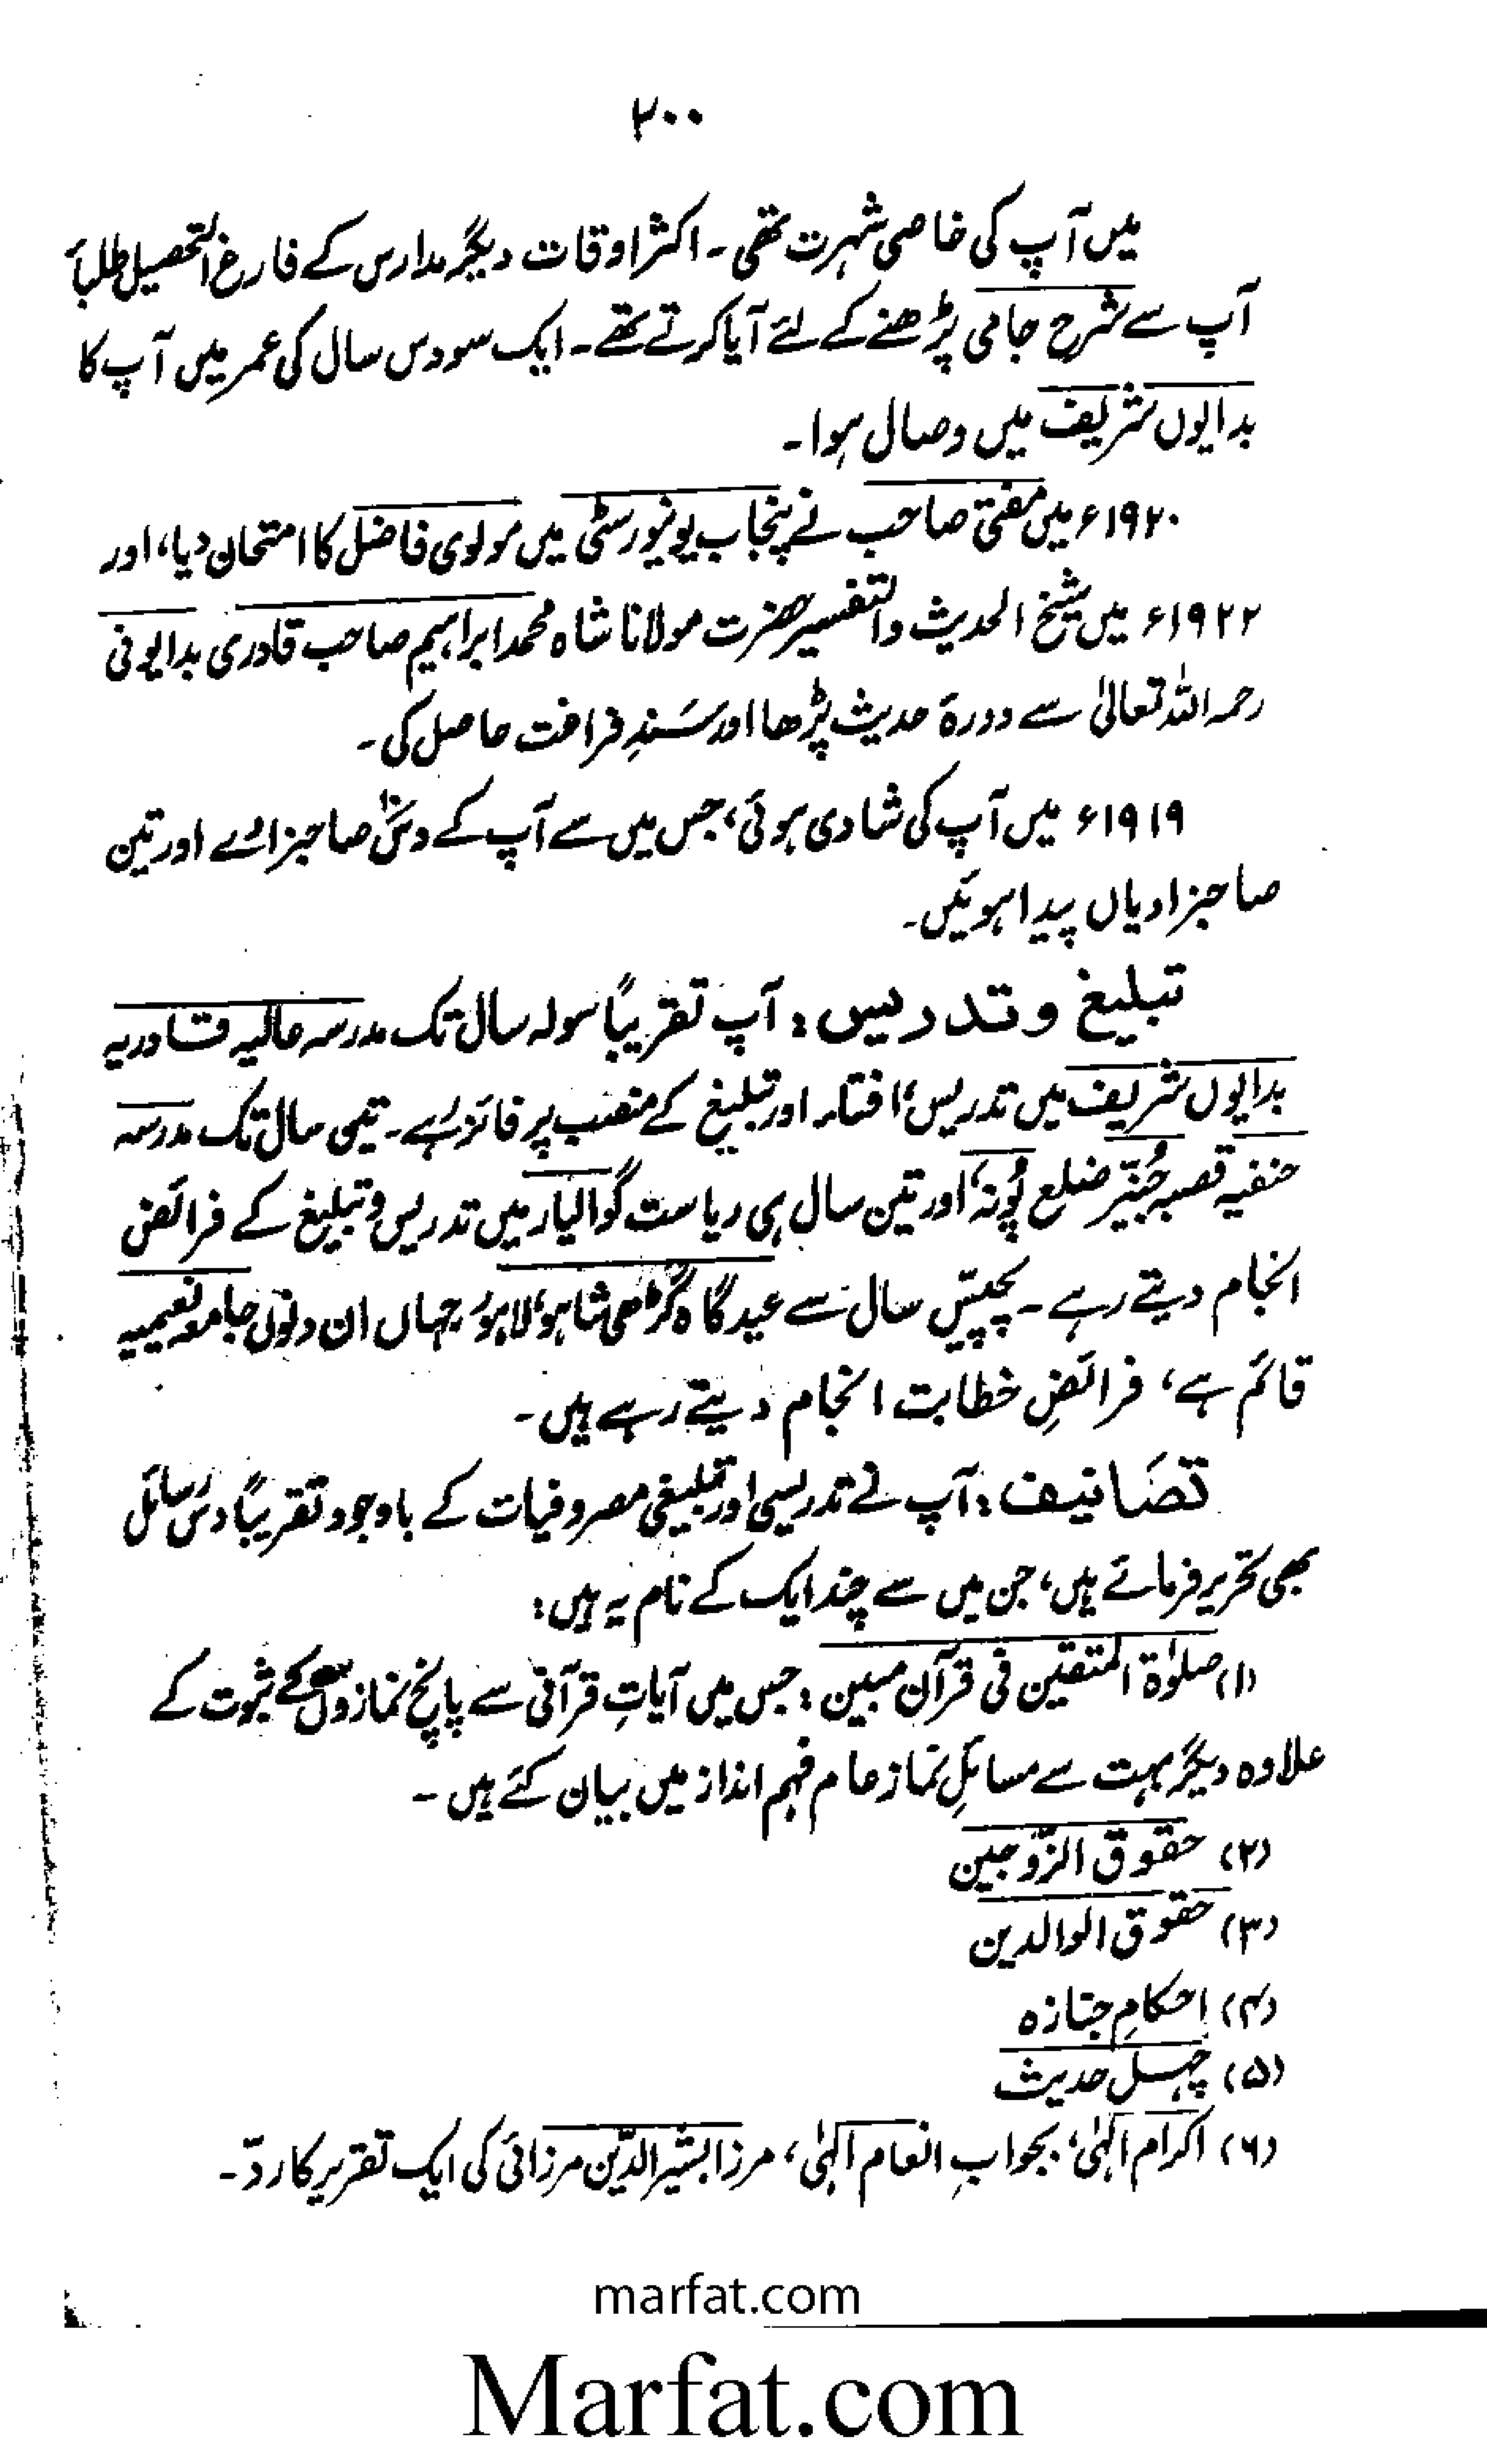 ۲۰۰
میں آپ کی خاصی شہرت تھی۔ اکثر اوقات دیگر مدارس کے فارغ التحصیل طلبأ
آپ سے شرح جامی پڑھنے کے لئے آیا کرتے تھے۔ ایک سو دس سال کی عمر میں آپ کا
بدایوں شریف میں وصال ہوا۔
۱۹۲۰ء میں مفتی صاحب نے پنجاب یونیورسٹی میں مولوی فاضل کا امتحان دیا، اور
۱۹۲۲ء میں شیخ الحدیث والتفسیر حضرت مولانا شاہ محمد ابراہیم صاحب قادری بدایونی
رحمہ اللہ تعالیٰ سے دورۂ حدیث پڑھا اور سَندِ فراغت حاصل کی۔
۱۹۱۹ء میں آپ کی شادی ہوئی، جس میں سے آپ کے دس صاحبزادے اور تین
صاحبزادیاں پیدا ہوئیں۔
تبلیغ و تدریس: آپ تقریباً سولہ سال تک مدرسہ عالیہ قادریہ
بدایوں شریف میں تدریس، افتاء اور تبلیغ کے منصب پر فائز رہے۔ تین سال تک مدرسہ
حنفیہ قصبہ جُنیّر ضلع پُونہ، اور تین سال ہی ریاست گوالیار میں تدریس و تبلیغ کے فرائض
انجام دیتے رہے۔ پچیس سال سے عیدگاہ گڑھی شاہو، لاہور، جہاں ان دنوں جامعہ نعیمیہ
قائم ہے، فرائضِ خطابت انجام دیتے رہے ہیں۔
تصَانیف: آپ نے تدریسی اور تبلیغی مصروفیات کے باوجود تقریباً دس رسائل
بھی تحریر فرمائے ہیں، جن میں سے چند ایک کے نام یہ ہیں:
(۱) صلوٰۃ المتقین فی قرآن مبین: جس میں آیاتِ قرآنی سے پانچ نمازوں کے ثبوت کے
علاوہ دیگر بہت سے مسائلِ نماز عام فہم انداز میں بیان کئے ہیں۔
(۲) حقوق الزّوجین
(۳) حقوق الوالدین
(۴) احکامِ جنازہ
(۵) چہل حدیث
(۶) اکرام الٰہی، بجوابِ انعام الٰہی، مرزا بشیر الدّین مرزائی کی ایک تقریر کا ردّ۔
marfat.com
Marfat.com